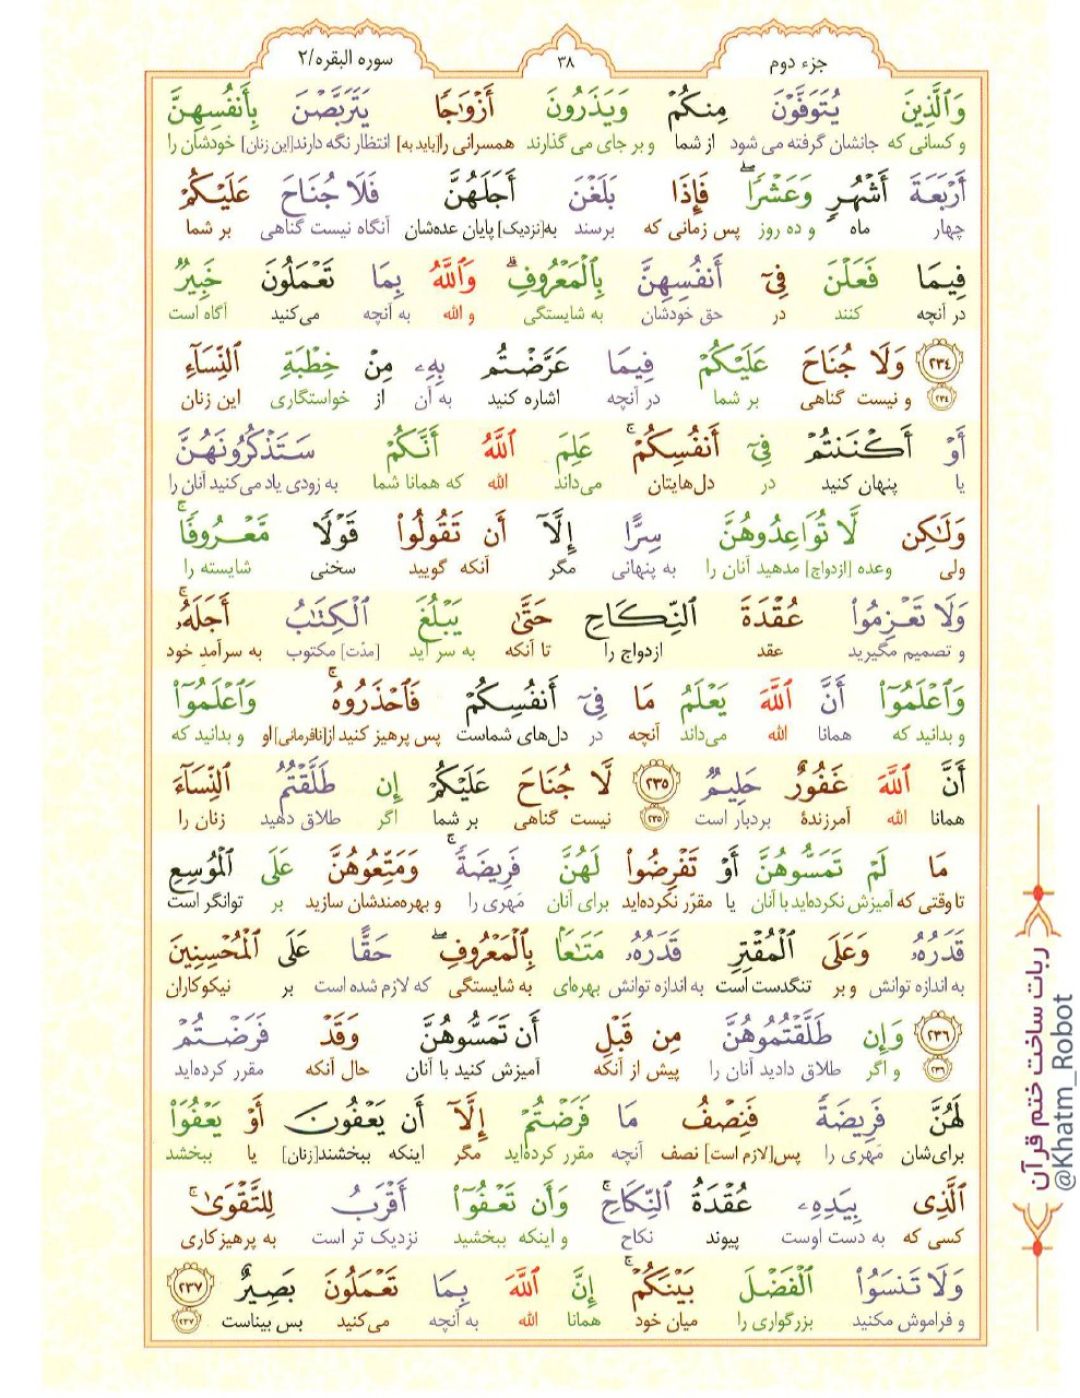 جزء دوم
۳۸
سوره البقره/۲
وَٱلَّذِينَ يُتَوَفَّوْنَ مِنكُمْ وَيَذَرُونَ أَزْوَٰجًا يَتَرَبَّصْنَ بِأَنفُسِهِنَّ
و کسانی که جانشان گرفته می شود از شما و بر جای می گذارند همسرانی را[باید به] انتظار نگه دارند[این زنان] خودشان را
أَرْبَعَةَ أَشْهُرٍ وَعَشْرًا ۖ فَإِذَا بَلَغْنَ أَجَلَهُنَّ فَلَا جُنَاحَ عَلَيْكُمْ
چهار ماه و ده روز پس زمانی که برسند به[نزدیک] پایان عده‌شان آنگاه نیست گناهی بر شما
فِيمَا فَعَلْنَ فِىٓ أَنفُسِهِنَّ بِٱلْمَعْرُوفِ ۗ وَٱللَّهُ بِمَا تَعْمَلُونَ خَبِيرٌ
در آنچه کنند در حق خودشان به شایستگی و الله به آنچه می‌کنید آگاه است
۲۳٤ وَلَا جُنَاحَ عَلَيْكُمْ فِيمَا عَرَّضْتُم بِهِۦ مِنْ خِطْبَةِ ٱلنِّسَآءِ
۲۳٤ و نیست گناهی بر شما در آنچه اشاره کنید به آن از خواستگاری این زنان
أَوْ أَكْنَنتُمْ فِىٓ أَنفُسِكُمْ ۚ عَلِمَ ٱللَّهُ أَنَّكُمْ سَتَذْكُرُونَهُنَّ
یا پنهان کنید در دل‌هایتان می‌داند الله که همانا شما به زودی یاد می‌کنید آنان را
وَلَٰكِن لَّا تُوَاعِدُوهُنَّ سِرًّا إِلَّآ أَن تَقُولُوا۟ قَوْلًا مَّعْرُوفًا ۚ
ولی وعده [ازدواج] مدهید آنان را به پنهانی مگر آنکه گویید سخنی شایسته را
وَلَا تَعْزِمُوا۟ عُقْدَةَ ٱلنِّكَاحِ حَتَّىٰ يَبْلُغَ ٱلْكِتَٰبُ أَجَلَهُۥ ۚ
و تصمیم مگیرید عقد ازدواج را تا آنکه به سر آید [مدّت] مکتوب به سرآمد خود
وَٱعْلَمُوٓا۟ أَنَّ ٱللَّهَ يَعْلَمُ مَا فِىٓ أَنفُسِكُمْ فَٱحْذَرُوهُ ۚ وَٱعْلَمُوٓا۟
و بدانید که همانا الله می‌داند آنچه در دل‌های شماست پس پرهیز کنید از[نافرمانی] او و بدانید که
أَنَّ ٱللَّهَ غَفُورٌ حَلِيمٌ ۲۳٥ لَّا جُنَاحَ عَلَيْكُمْ إِن طَلَّقْتُمُ ٱلنِّسَآءَ
همانا الله آمرزندهٔ بردبار است ۲۳٥ نیست گناهی بر شما اگر طلاق دهید زنان را
مَا لَمْ تَمَسُّوهُنَّ أَوْ تَفْرِضُوا۟ لَهُنَّ فَرِيضَةً ۚ وَمَتِّعُوهُنَّ عَلَى ٱلْمُوسِعِ
تا وقتی که آمیزش نکرده‌اید با آنان یا مقرّر نکرده‌اید برای آنان مَهری را و بهره‌مندشان سازید بر توانگر است
قَدَرُهُۥ وَعَلَى ٱلْمُقْتِرِ قَدَرُهُۥ مَتَٰعًۢا بِٱلْمَعْرُوفِ ۖ حَقًّا عَلَى ٱلْمُحْسِنِينَ
به اندازه توانش و بر تنگدست است به اندازه توانش بهره‌ای به شایستگی که لازم شده است بر نیکوکاران
۲۳٦ وَإِن طَلَّقْتُمُوهُنَّ مِن قَبْلِ أَن تَمَسُّوهُنَّ وَقَدْ فَرَضْتُمْ
۲۳٦ و اگر طلاق دادید آنان را پیش از آنکه آمیزش کنید با آنان حال آنکه مقرر کرده‌اید
لَهُنَّ فَرِيضَةً فَنِصْفُ مَا فَرَضْتُمْ إِلَّآ أَن يَعْفُونَ أَوْ يَعْفُوَا۟
برای‌شان مَهری را پس[لازم است] نصف آنچه مقرر کرده‌اید مگر اینکه ببخشند[زنان] یا ببخشد
ٱلَّذِى بِيَدِهِۦ عُقْدَةُ ٱلنِّكَاحِ ۚ وَأَن تَعْفُوٓا۟ أَقْرَبُ لِلتَّقْوَىٰ ۚ
کسی که به دست اوست پیوند نکاح و اینکه ببخشید نزدیک تر است به پرهیزکاری
وَلَا تَنسَوُا۟ ٱلْفَضْلَ بَيْنَكُمْ ۚ إِنَّ ٱللَّهَ بِمَا تَعْمَلُونَ بَصِيرٌ ۲۳۷
و فراموش مکنید بزرگواری را میان خود همانا الله به آنچه می‌کنید بس بیناست ۲۳۷
ربات ساخت ختم قرآن
@Khatm_Robot